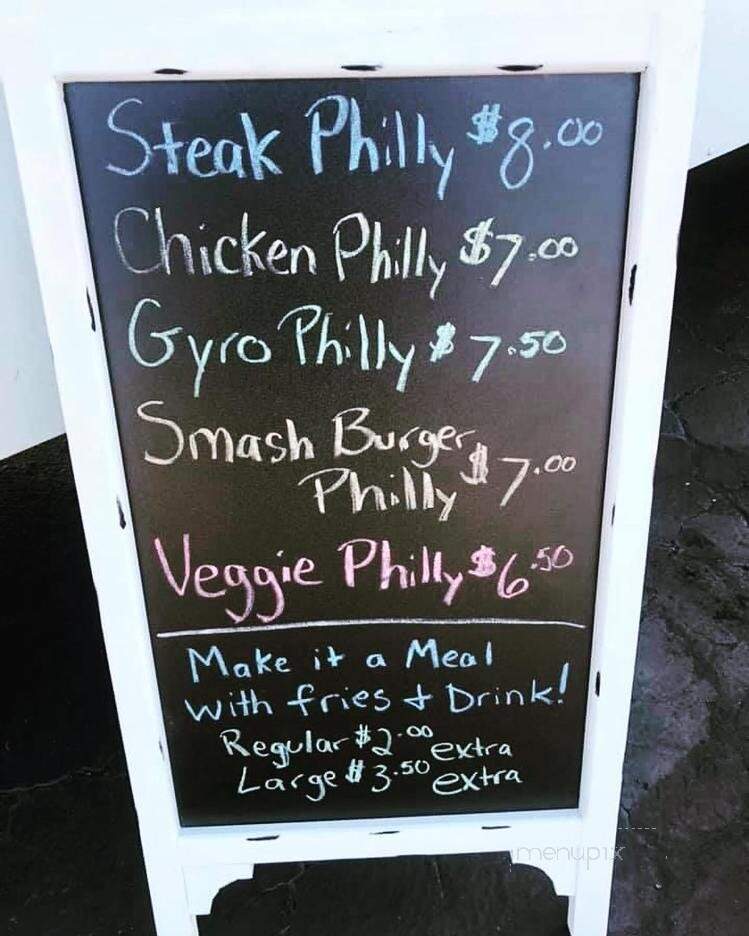 Steak Philly $8.00
Chicken Philly $7.00
Gyro Philly $7.50
Smash Burger
Philly $7.00
Veggie Philly $6.50
Make it a Meal
with fries + Drink!
Regular $2.00 extra
Large $3.50 extra
menupix